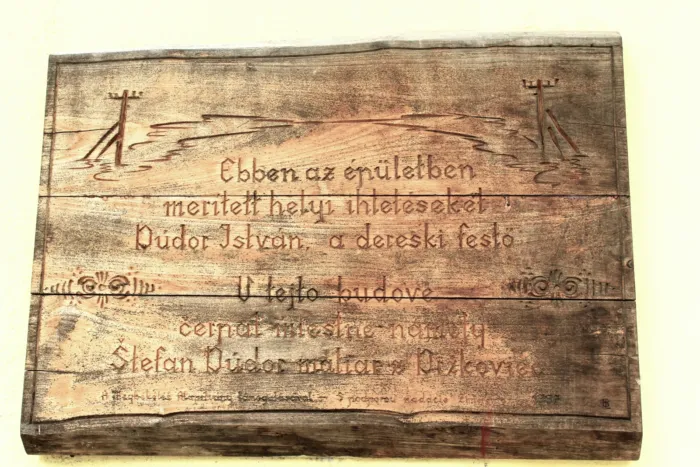 Ebben az épületben
merített helyi ihletéseket
Dúdor István, a dereski festő
V tejto budove
čerpal miestne námety
Štefan Dúdor maliar z Držkoviec
A támogatásával S podporou Nadácie